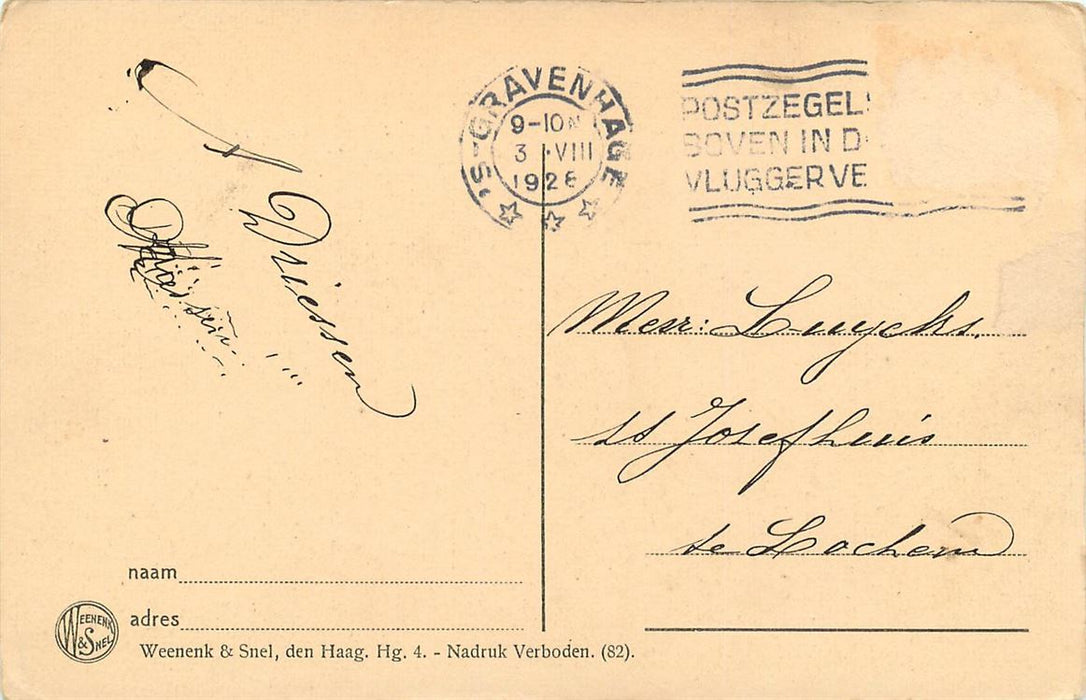 A Driessen
'S-GRAVENHAGE
9-10N
3 VIII
1928
POSTZEGELS
BOVEN IN D
VLUGGER VE
Merr: Luycks.
St Josefhuis
te Lochem
naam
adres
WEENENK
& SNEL
Weenenk & Snel, den Haag. Hg. 4. - Nadruk Verboden. (82).